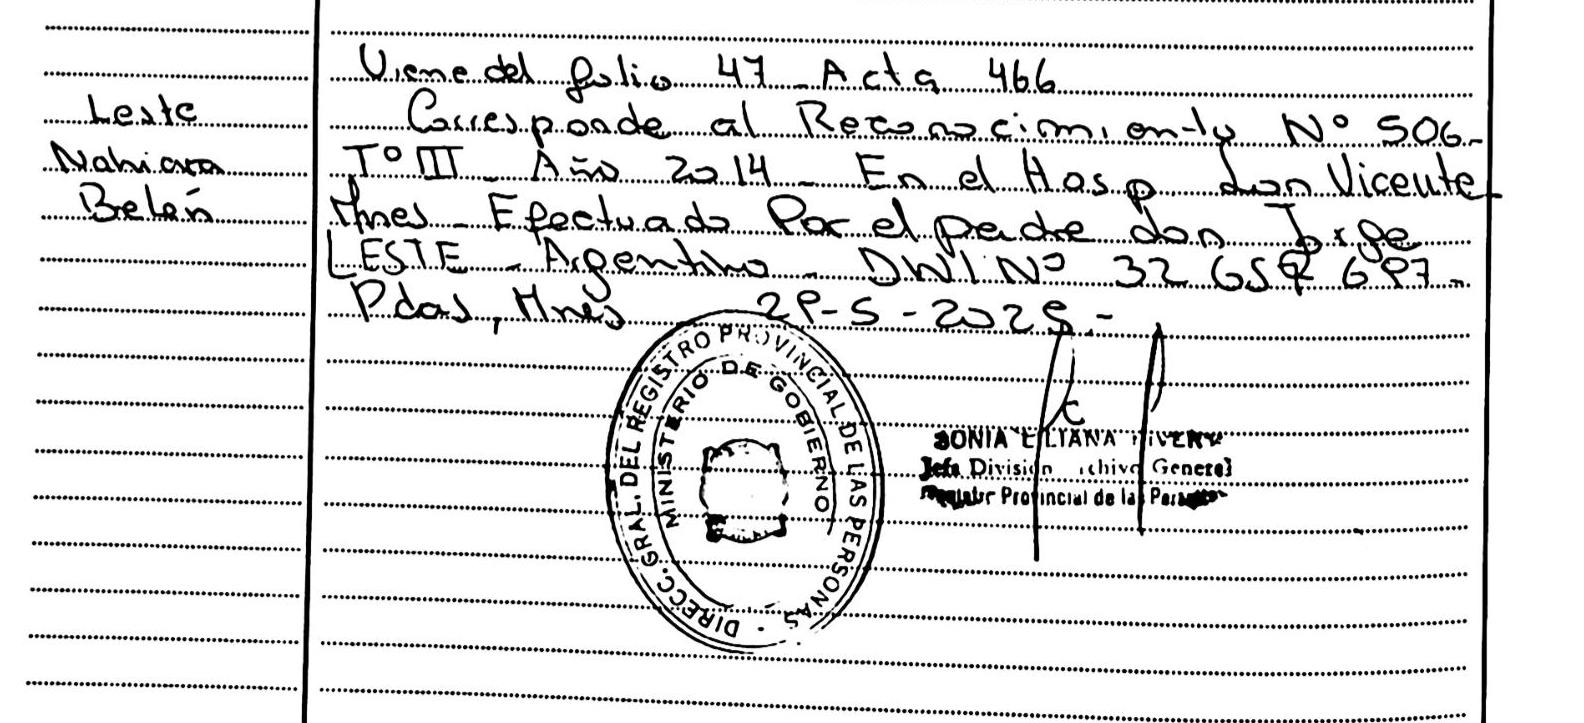 Viene del folio 47 - Acta 466
Leste
Corresponde al Reconocimiento Nº 506-
Nahiara
Tº III - Año 2014 - En el Hosp don Vicente
Belén
Mnes - Efectuado Por el padre don Jorge
LESTE - Argentino - DNI Nº 32 659 697-
Pdas, Mnes 29-5-2025.-
DIRECC. GRAL. DEL REGISTRO PROVINCIAL DE LAS PERSONAS -
MINISTERIO DE GOBIERNO
SONIA LILIANA
Jefa División Archivo General
Provincial de las